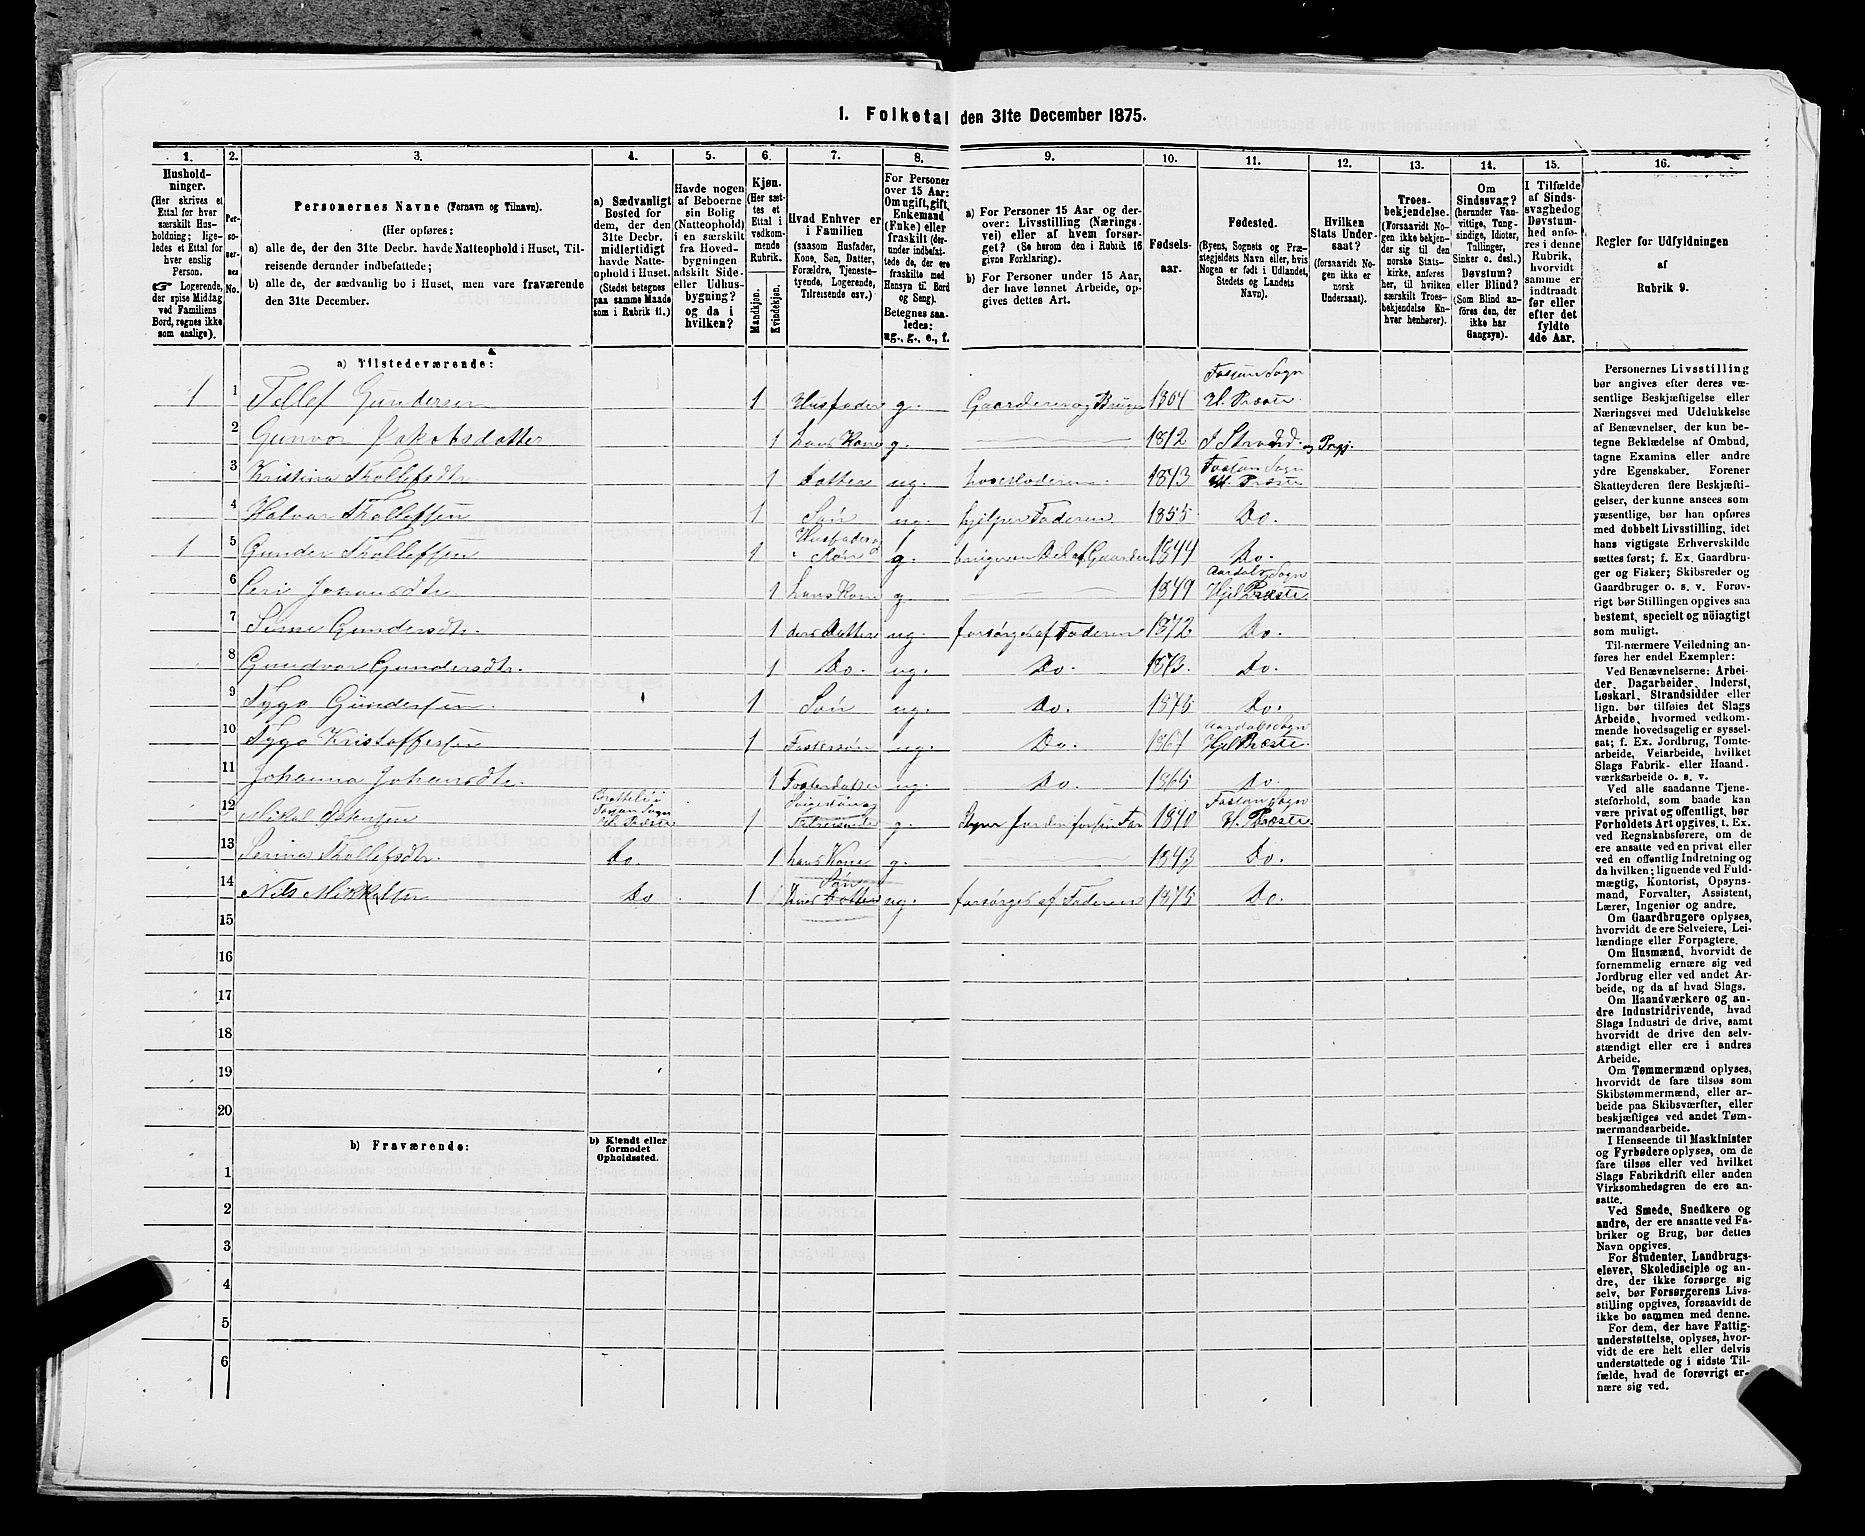 1. Folketal den 31te December 1875.
1. 2. 3. 4. 5. 6. 7. 8. 9. 10. 11. 12. 13. 14. 15. 16.
Hushold-
ninger.
(Her skrives et
Ettal for hver
særskilt Hus-
holdning; lige-
ledes et Ettal for
hver enslig
Person.
☞ Logerende,
der spise Middag
ved Familiens
Bord, regnes ikke
som enslige).
Per-
so-
ner-
nes
No.
Personernes Navne (Fornavn og Tilnavn).
(Her opføres:
a) alle de, der den 31te Decbr. havde Natteophold i Huset, Til-
reisende derunder indbefattede;
b) alle de, der sædvanlig bo i Huset, men vare fraværende
den 31te December.
a) Sædvanligt
Bosted for
dem, der den
31te Decbr.
midlertidigt
havde Natte-
ophold i Huset.
(Stedet betegnes
paa samme Maade
som i Rubrik 11.)
Havde nogen
af Beboerne
sin Bolig
(Natteophold)
i en særskilt
fra Hoved-
bygningen
adskilt Side-
eller Udhus-
bygning?
og da i
hvilken?
Kjøn.
(Her sæt-
tes et
Ettal i
vedkom-
mende
Rubrik.
Mandkjøn.
Kvindekjøn.
Hvad Enhver er
i Familien
(saasom Husfader,
Kone, Søn, Datter,
Forældre, Tjeneste-
tyende, Logerende,
Tilreisende osv.)
For Personer
over 15 Aar:
Om ugift, gift,
Enkemand
(Enke) eller
fraskilt (der-
under indbefat-
tede de, der ere
fraskilte med
Hensyn til Bord
og Seng).
Betegnes saa-
ledes:
ug., g., e., f.
a) For Personer 15 Aar og der-
over: Livsstilling (Nærings-
vei) eller af hvem forsør-
get? (Se herom den i Rubrik 16
givne Forklaring).
b) For Personer under 15 Aar,
der have lønnet Arbeide, op-
gives dettes Art.
Fødsels-
aar.
Fødested.
(Byens, Sognets og Præ-
stegjeldets Navn eller, hvis
Nogen er født i Udlandet,
Stedets og Landets
Navn).
Hvilken
Stats Under-
saat?
(forsaavidt No-
gen ikke er
norsk
Undersaat).
Troes-
bekjendelse.
(Forsaavidt No-
gen ikke bekjen-
der sig til den
norske Stats-
kirke, anføres
her, til hvilken
særskilt Troes-
bekjendelse En-
hver henhører).
Om
Sindssvag?
(herunder Van-
vittige, Tung-
sindige, Idioter,
Tullinger,
Sinker o. desl.)
Døvstum?
eller Blind?
(Som Blind an-
føres den, der
ikke har
Gangsyn).
I Tilfælde
af Sinds-
svaghedog
Døvstum-
hed anfø-
res i denne
Rubrik,
hvorvidt
samme er
indtraadt
før eller
efter det
fyldte
4de Aar.
Regler for Udfyldningen
af
Rubrik 9.
a) Tilstedeværende:
1 1 Tollef Gundersen 1 Husfader g. Gaardeier og Bruger 1804 Fossan Sogn Hl. Præste.
2 Gunvor Jakobsdatter 1 hans Kone g. 1812 Strand og Præj.
3 Kristina Thollefsdtr 1 Datter ug. 1843 Fossan Sogn Hl. Præste
4 Halvor Tholleffsen 1 Søn ug. hjelper Faderen 1855 Do.
1 5 Gunder Tholleffsen 1 Husfader og Søn g. bruger en Del af Gaarden 1844 Do.
6 Seri Johansdtr 1 hans Kone g. 1849 Aardals Sogn Hjel. Præste.
7 Serine Gundersdtr. 1 deres Datter ug. forsørges af Faderen 1872 Do.
8 Gundvor Gundersdtr. 1 Do. ug. Do. 1873. Do.
9 Tygo Gundersen. 1 Søn ug. Do. 1875 Do.
10 Tygo Kristoffersen 1 Fostersøn ug. Do. 1861 Aardals Sogn Hjel Præste.
11 Johanna Johansdtr. 1 Fosterdatter ug. Do 1865 Do
12 Mikal Ostensen Fossan Sogn Hl. Præste 1 Svigersøn og Tilreisende g. Styrer Jorden for sin Far 1840 Fossan Sogn Hl. Præste
13 Serina Thollefsdtr. Do 1 hans Kone g. 1843 Do.
14 Nils Mikkelsen Do 1 Søn deres Datter ug. forsørges af Faderen 1875 Do.
15
16
17
18
19
20
b) Fraværende:
b) Kjendt eller
formodet
Opholdssted.
1
2
3
4
5
6
Personernes Livsstilling
bør angives efter deres væ-
sentlige Beskjæftigelse eller
Næringsvei med Udelukkelse
af Benævnelser, der kun be-
tegne Beklædelse af Ombud,
tagne Examina eller andre
ydre Egenskaber. Forener
Skatteyderen flere Beskjæfti-
gelser, der kunne ansees som
væsentlige, bør han opføres
med dobbelt Livsstilling, idet
hans vigtigste Erhvervskilde
sættes først; f. Ex. Gaardbru-
ger og Fisker; Skibsreder og
Gaardbruger o. s. v. Forøv-
rigt bør Stillingen opgives saa
bestemt, specielt og nøiagtigt
som muligt.
Til nærmere Veiledning an-
føres her endel Exempler:
Ved Benævnelserne: Arbei-
der, Dagarbeider, Inderst,
Løskarl, Strandsidder eller
lign. bør tilføies det Slags
Arbeide, hvormed vedkom-
mende hovedsagelig er syssel-
sat; f. Ex. Jordbrug, Tomte-
arbeide, Veiarbeide, hvilket
Slags Fabrik- eller Haand-
værksarbeide o. s. v.
Ved alle saadanne Tjene-
steforhold, som baade kan
være privat og offentligt, bør
Forholdets Art opgives, t. Ex.
ved Regnskabsførere, om de
ere ansatte ved en privat eller
ved en offentlig Indretning og
da hvilken; lignende ved Fuld-
mægtig, Kontorist, Opsyns-
mand, Forvalter, Assistent,
Lærer, Ingeniør og andre.
Om Gaardbrugere oplyses,
hvorvidt de ere Selveiere, Lei-
lændinge eller Forpagtere.
Om Husmænd, hvorvidt de
fornemmelig ernære sig ved
Jordbrug eller ved andet Ar-
beide, og da af hvad Slags.
Om Haandværkere og an-
dre Industridrivende, hvad
Slags Industri de drive, samt
hvorvidt de drive den selv-
stændigt eller ere i andres
Arbeide.
Om Tømmermænd oplyses,
hvorvidt de fare tilsøs som
Skibstømmermænd, eller ar-
beide paa Skibsværfter, eller
beskjæftiges ved andet Tøm-
mermandsarbeide.
I Henseende til Maskinister
og Fyrbødere oplyses, om de
fare tilsøs eller ved hvilket
Slags Fabrikdrift eller anden
Virksomhedsgren de ere an-
satte.
Ved Smede, Snedkere og
andre, der ere ansatte ved Fa-
briker og Brug, bør dettes
Navn opgives.
For Studenter, Landbrugs-
elever, Skoledisciple og an-
dre, der ikke forsørge sig
selv, bør Forsørgerens Livs-
stilling opgives, forsaavidt de
ikke bo sammen med denne.
For dem, der have Fattig-
understøttelse, oplyses, hvor-
vidt de ere helt eller delvis
understøttede og i sidste Til-
fælde, hvad de forøvrigt er-
nære sig ved.